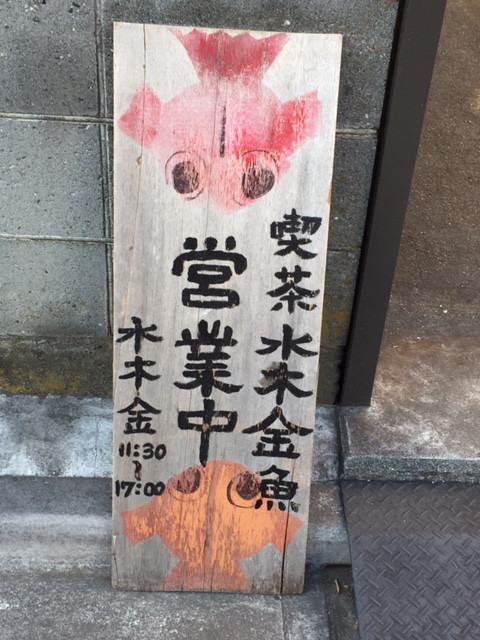 喫茶水木金魚
営業中
水木金
11:30
〜
17:00